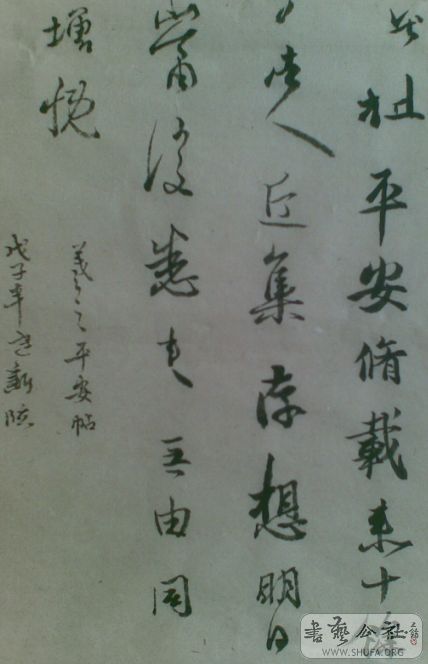 粗平安脩載来十
諸人近集存想明日
當復悉来无由同
增慨
羲之平安帖
戊子年新臨
書藝公社
WWW.SHUFA.ORG